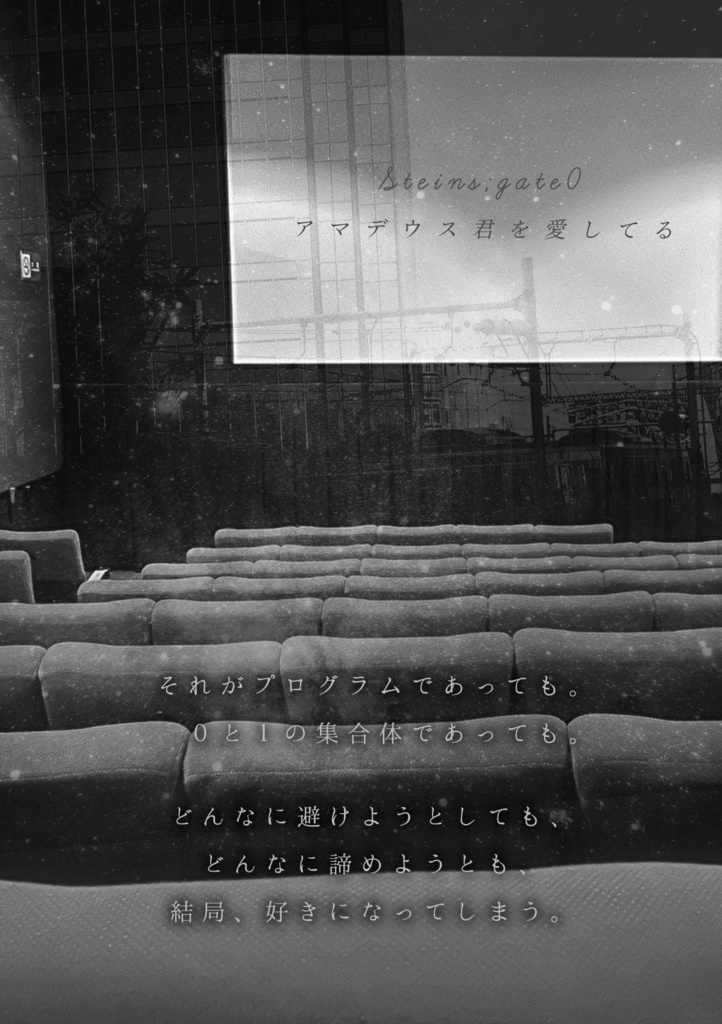 Steins;gate0
アマデウス君を愛してる
それがプログラムであっても。
0と1の集合体であっても。
どんなに避けようとしても、
どんなに諦めようとも、
結局、好きになってしまう。